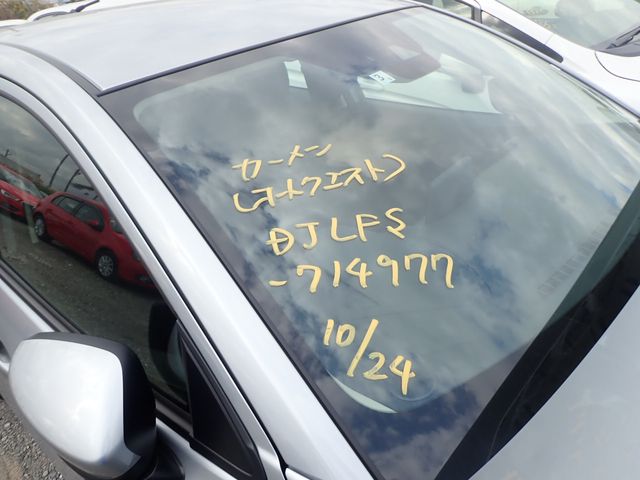 カーメン
(オートクエスト)
DJLFS
-714977
10/24